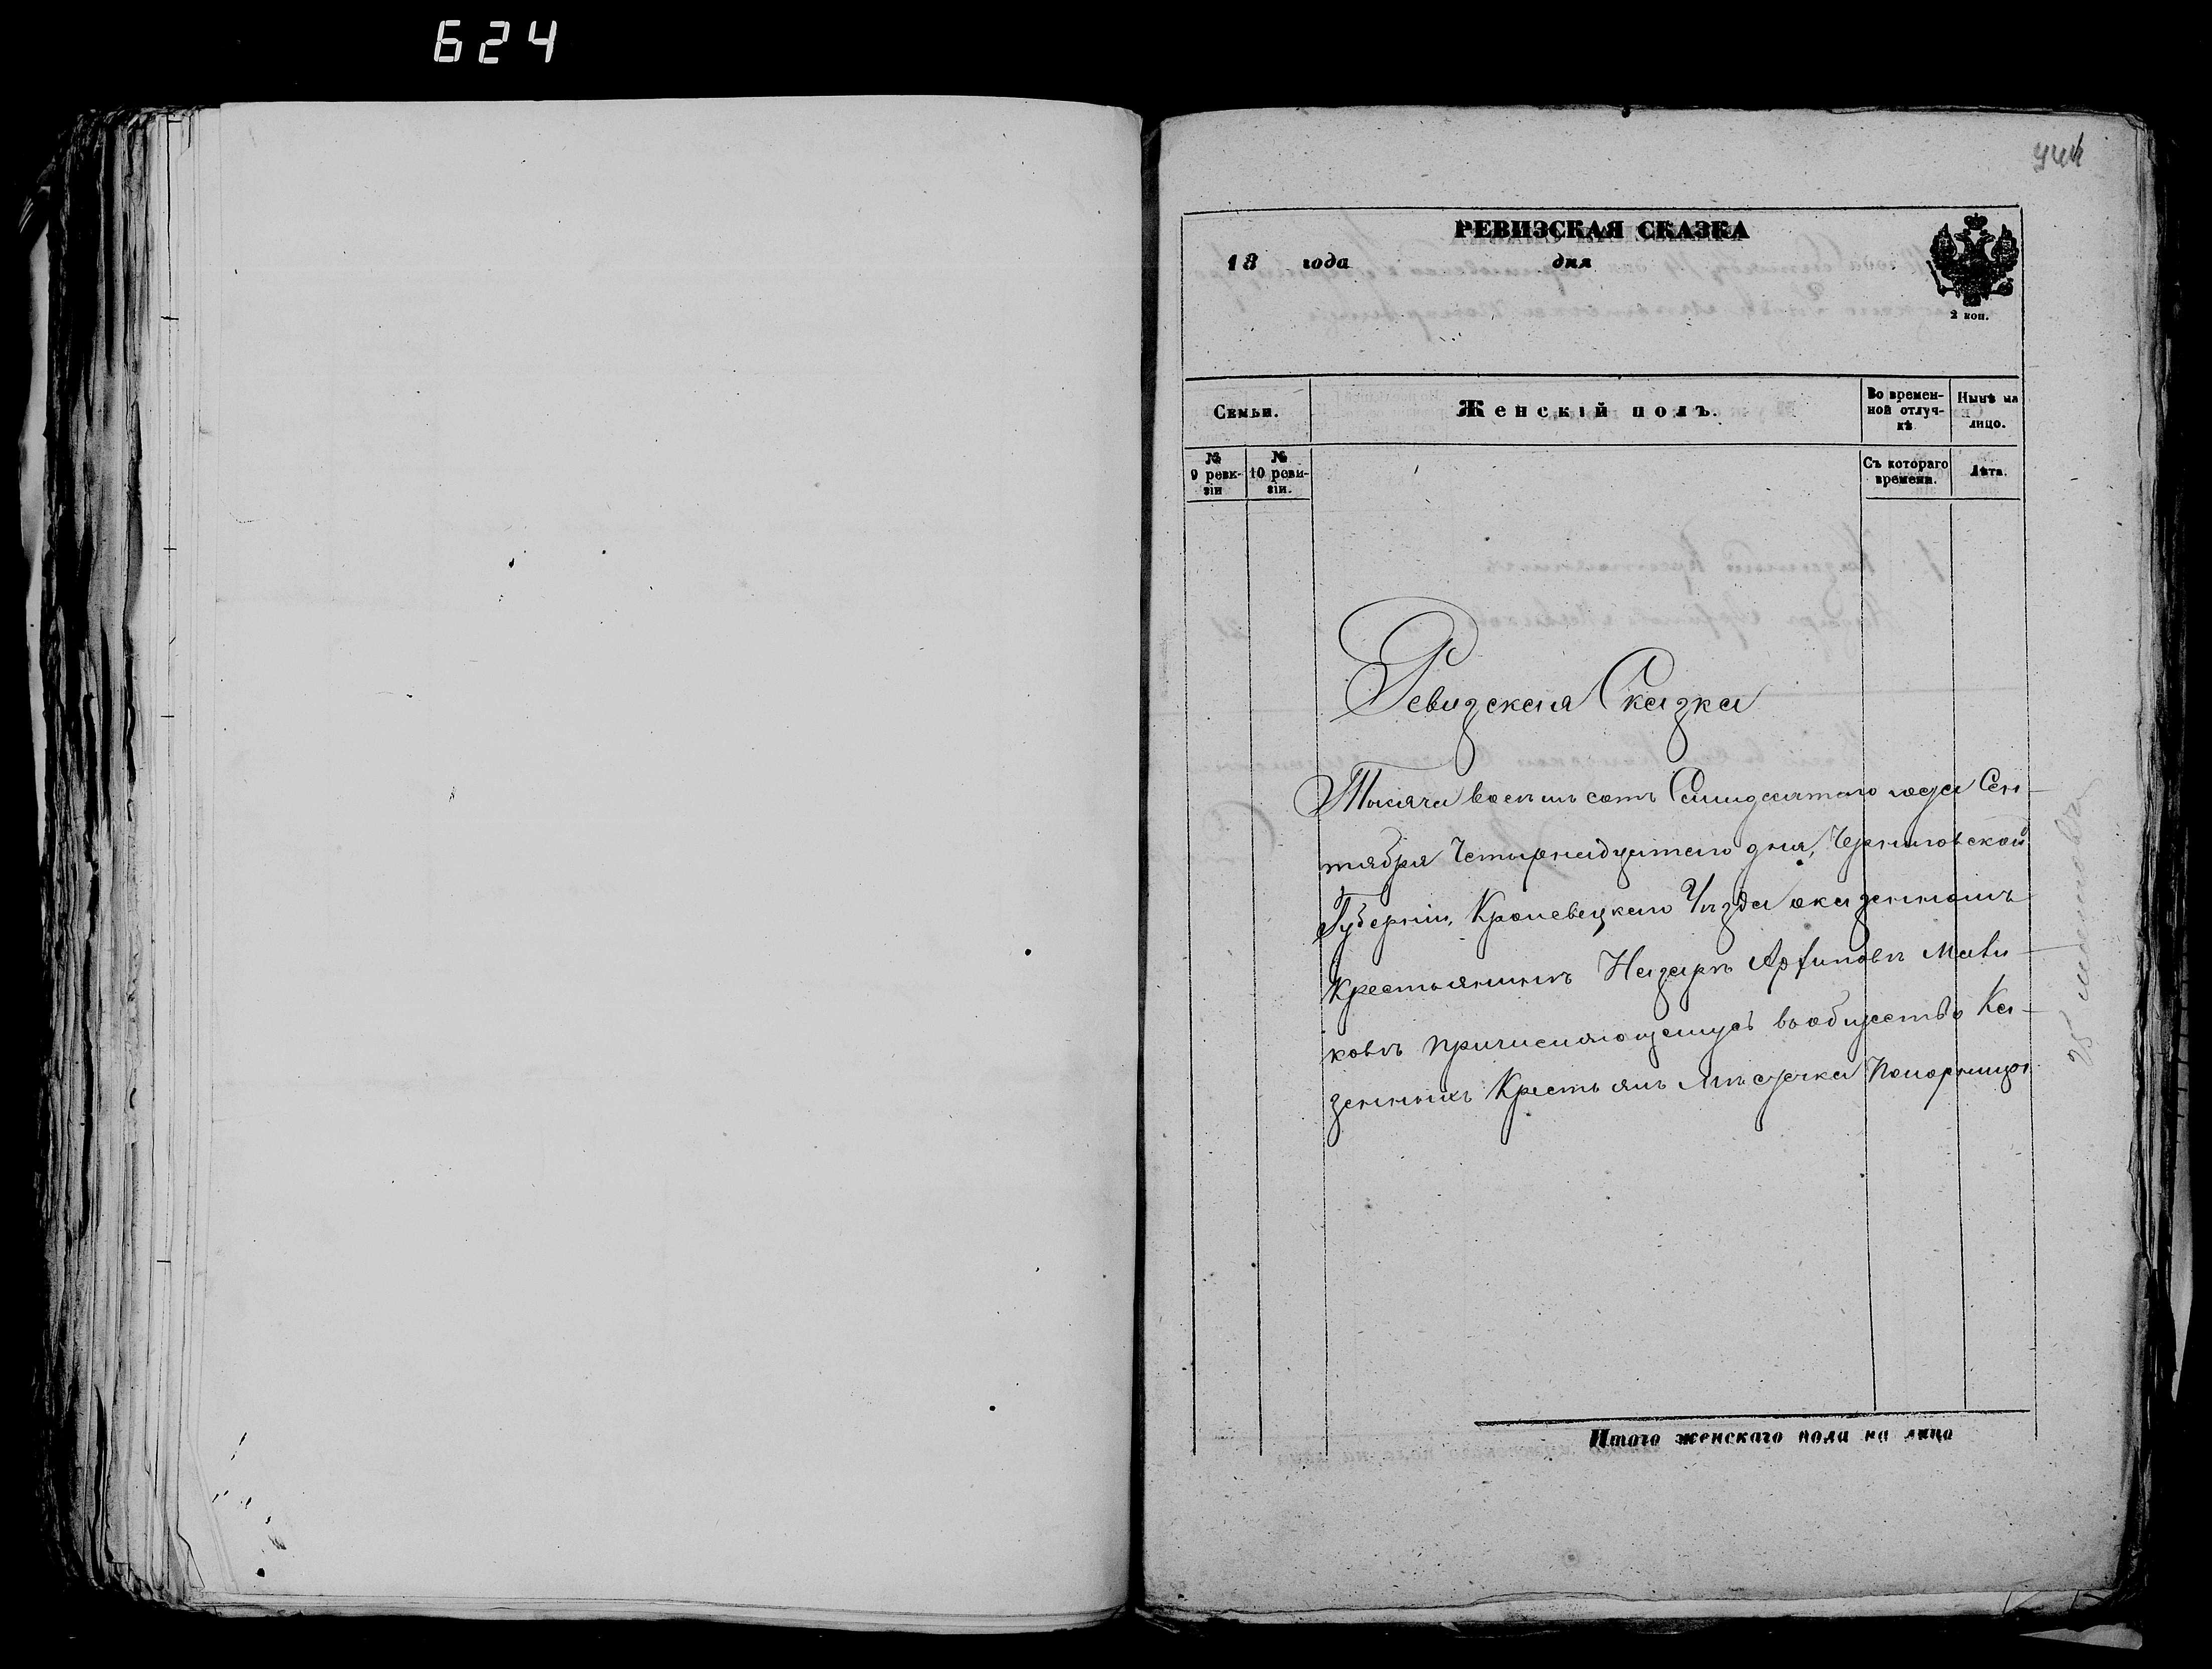 624
РЕВИЗСКАЯ СКАЗКА
18 года дня
2 коп.
Семьи.
Женскій полъ.
Во времен-
ной отлуч-
кѣ.
Нынѣ на
лицо.
№
9 реви-
зіи
№
10 реви-
зіи.
Съ котораго
времени.
Лѣта.
Ревизская Сказка
Тысяча восемь сотъ Семидесятого года Сен-
тября Четырнадцатаго дня, Черниговской
Губерніи, Кролевецкаго Уѣзда о казенномъ
Крестьянинѣ Назарѣ Архиповѣ
ковѣ причисляющемуся въ общество Ка-
зенныхъ Крестьянъ Мѣстечка Понорницы
Итого женскаго пола на лицо